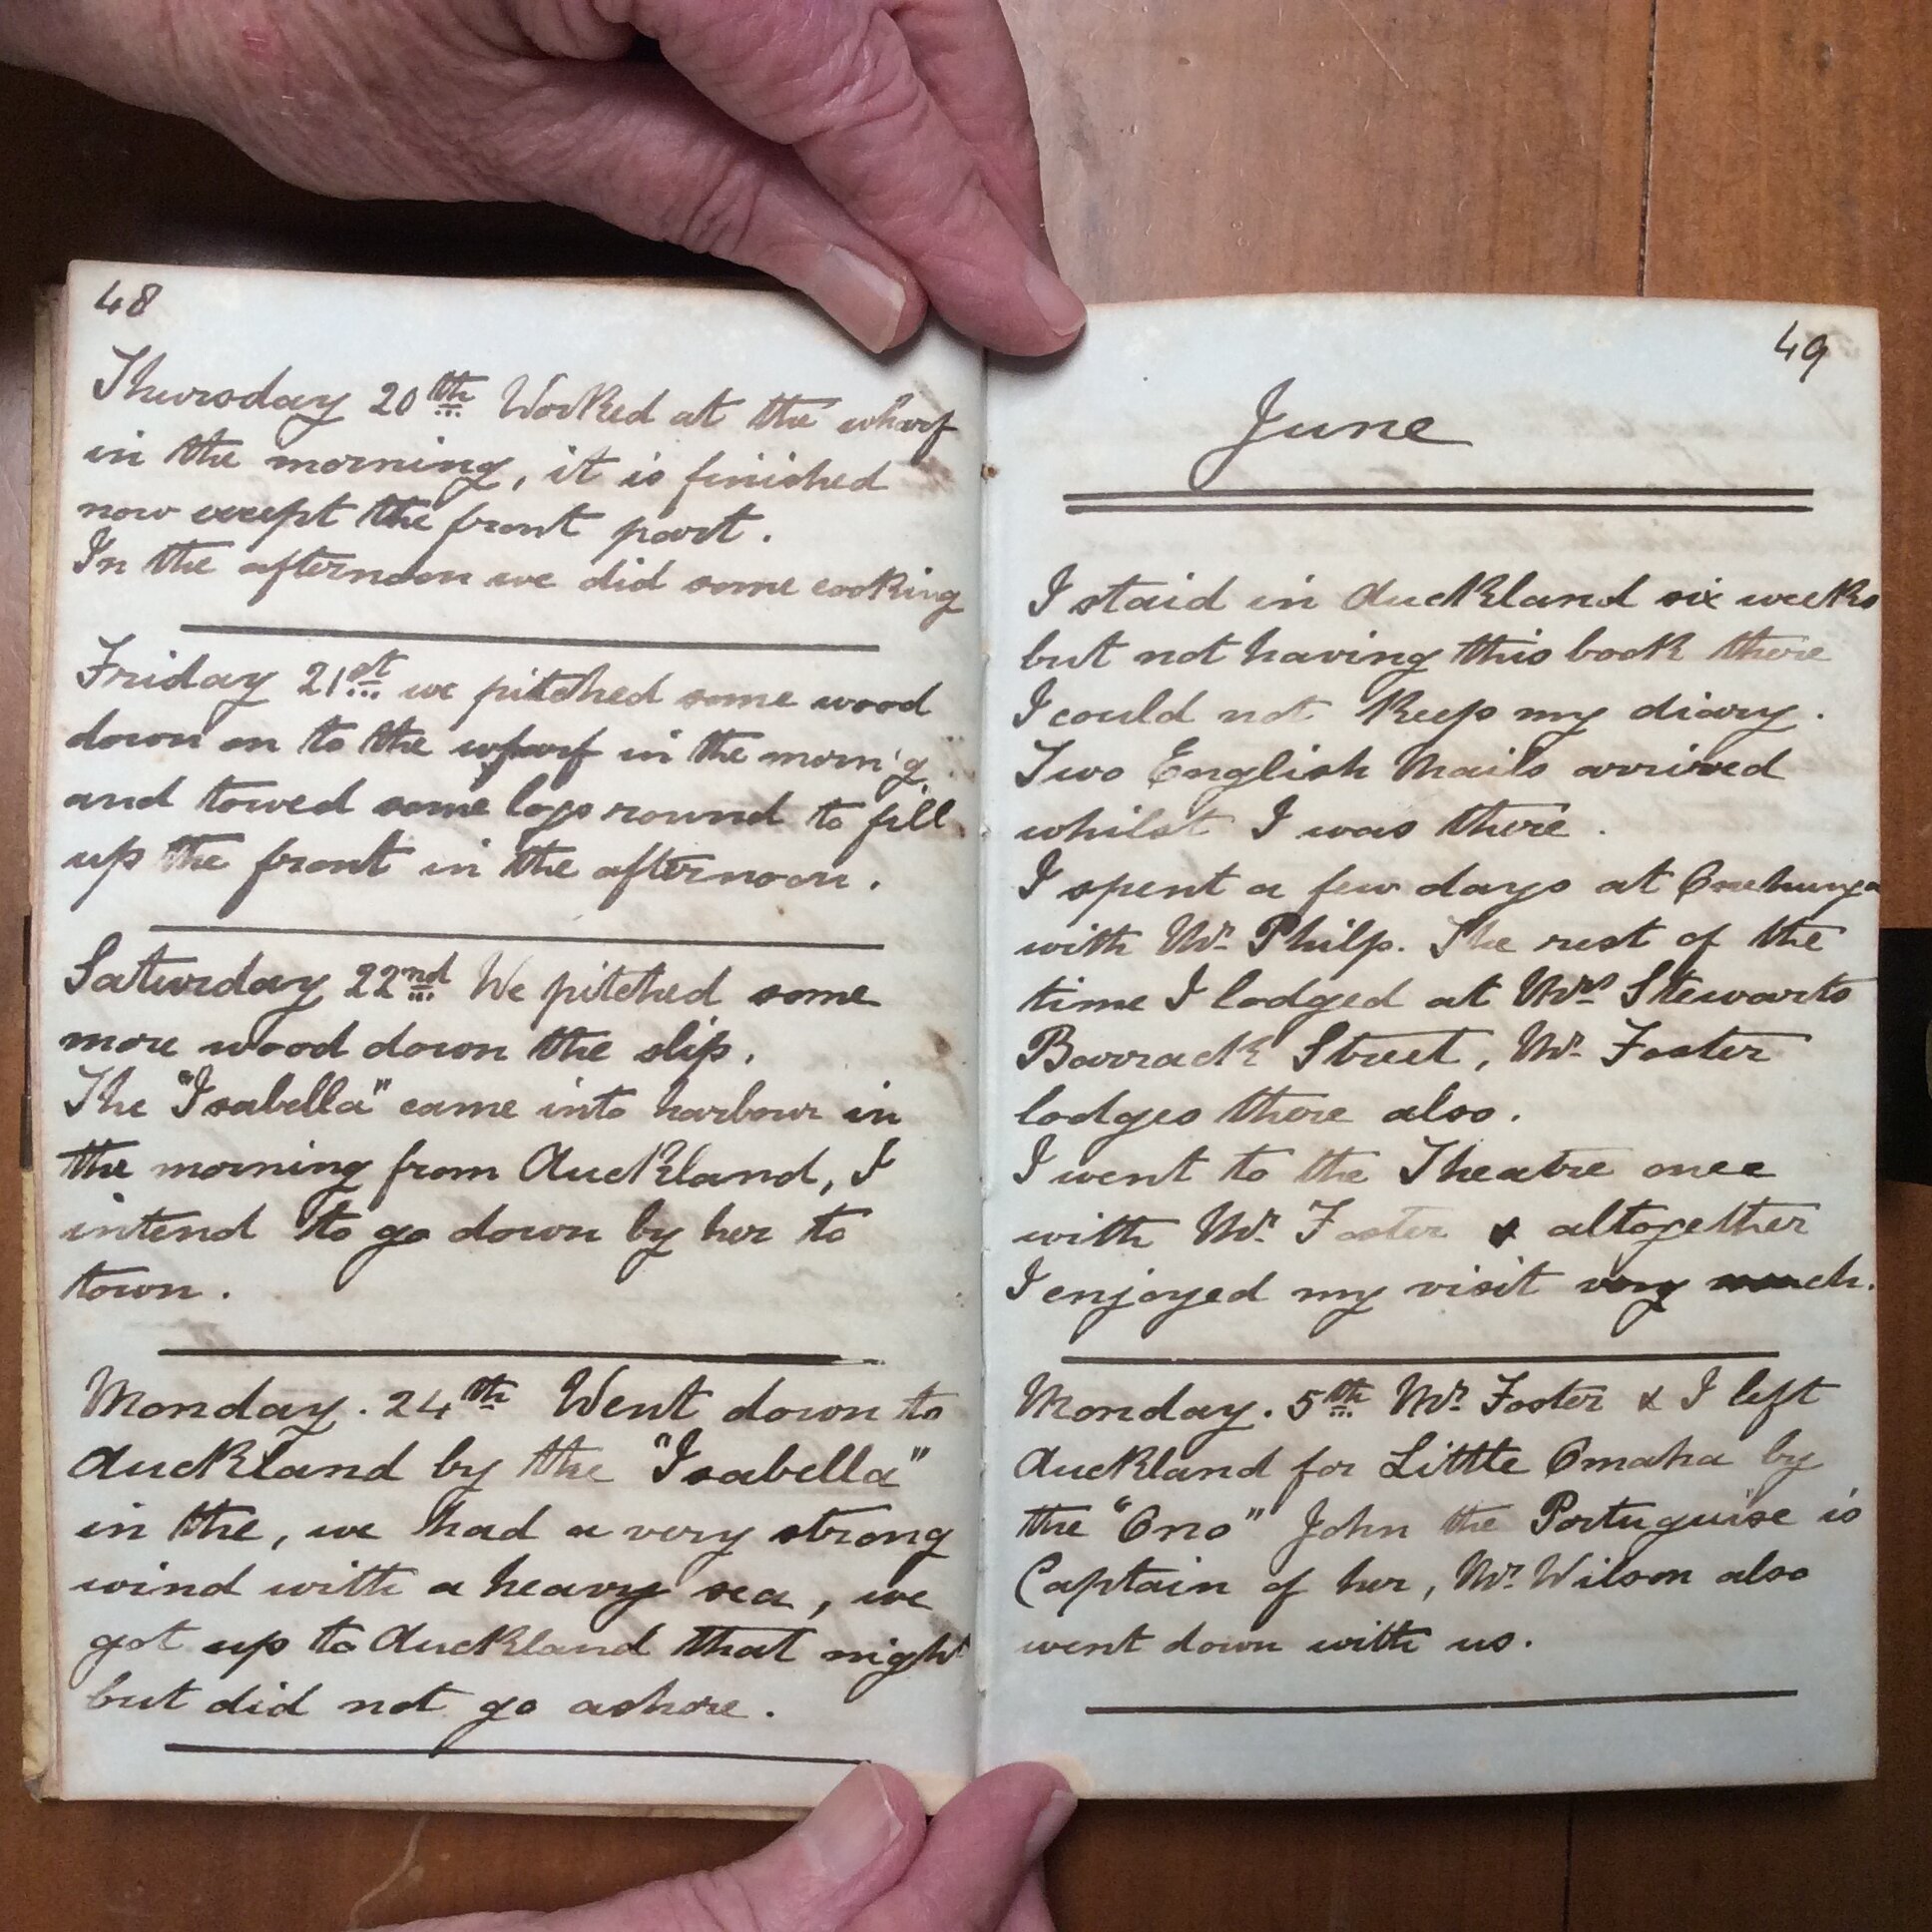 48
Thursday 20th Worked at the wharf
in the morning, it is finished
now except the front part.
In the afternoon we did some cooking
Friday 21st we pitched some wood
down on to the wharf in the morn'g
and towed some logs round to fill
up the front in the afternoon.
Saturday 22nd We pitched some
more wood down the slip.
The "Isabella" came into harbour in
the morning from Auckland, I
intend to go down by her to
town.
Monday. 24th Went down to
Auckland by the "Isabella"
in the, we had a very strong
wind with a heavy sea, we
got up to Auckland that night
but did not go ashore.
49
June
I staid in Auckland six weeks
but not having this book there
I could not keep my diary.
Two English Mails arrived
whilst I was there.
I spent a few days at Onehunga
with Mr. Philp. The rest of the
time I lodged at Mrs Stewarts
Barrack Street, Mr. Foster
lodges there also.
I went to the Theatre once
with Mr. Foster & altogether
I enjoyed my visit very much.
Monday. 5th Mr. Foster & I left
Auckland for Little Omaha by
the "Ono" John the Portuguise is
Captain of her, Mr. Wilson also
went down with us.